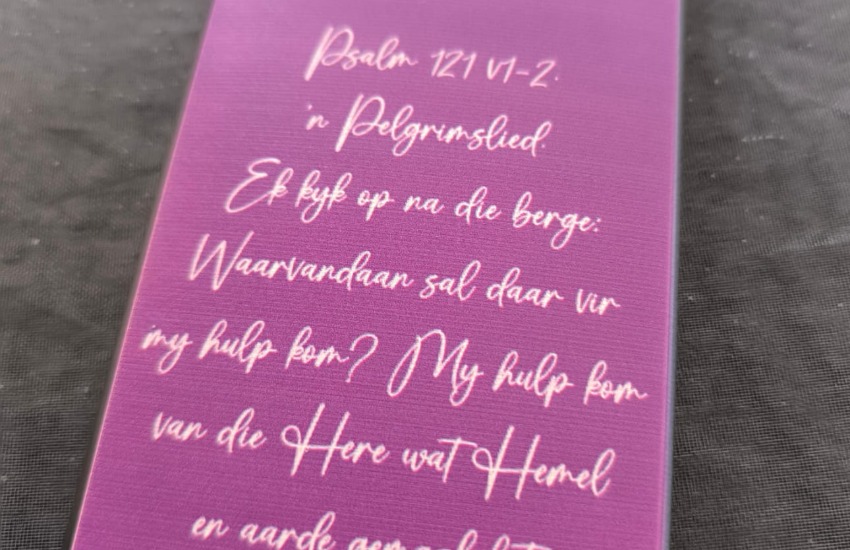 Psalm 121 v1-2.
'n Pelgrimslied.
Ek kyk op na die berge:
Waarvandaan sal daar vir
my hulp kom? My hulp kom
van die Here wat Hemel
en aarde